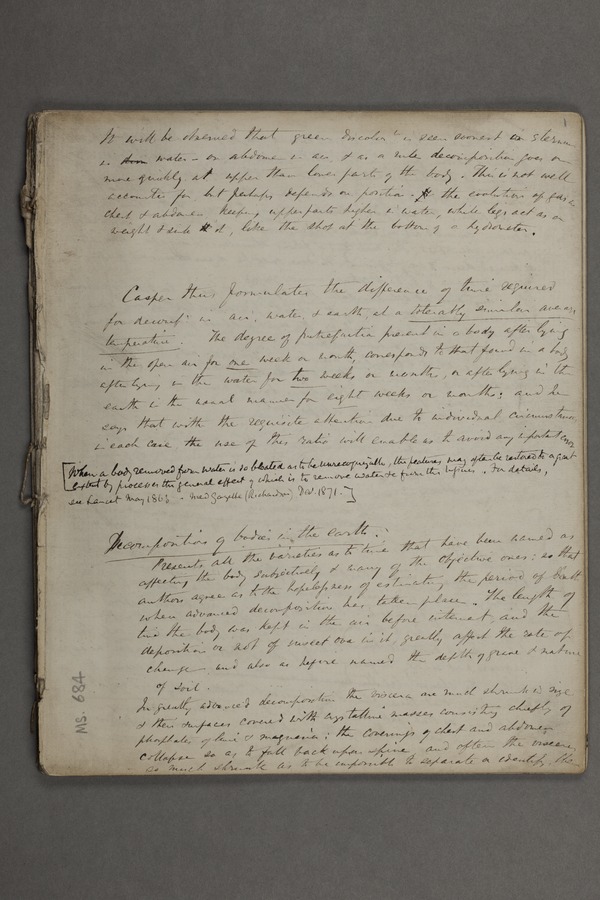 It will be observed that green discolorn is seen soonest on sternum
in water - on abdomen in air, & as a rule decomposition goes on
more quickly at upper than lower parts of the body. This is not well
accounted for but perhaps depends on position. the evolution of gas in
chest & abdomen keeping upper parts higher in water, while legs act as a
weight & sink it, like the shot at the bottom of a hydrometer.
Casper thus formulates the difference of time required
for decomp. in air, water, & earth, at a tolerably similar average
temperature. The degree of putrefaction present in a body after lying
in the open air for one week or month, corresponds to that found in a body
after lying in the water for two weeks or months, or after lying in the
earth in the usual manner for eight weeks or months: and he
says that with the requisite attention due to individual circumstances
in each case the use of this ratio will enable us to avoid any important error
[When a body removed from water is so bloated as to be unrecognizable, the features may often be restored to a great
extent by processes the general effect of which is to remove water & from the tissues. For details,
see Lancet May 1863 - Med Gazette (Richardson) Dec. 1871.]
Decomposition of bodies in the earth:
Presents all the varieties as to time that have been named as
affecting the body subjectively & many of the objective ones: so that
authors agree as to the hopelessness of estimating the period of death
when advanced decomposition has taken place. The length of
time the body was kept in the air before interment, and the
deposition or not of insect ova in it, greatly affect the rate of
change and also as before named the depth of grave & nature
of soil.
In greatly advanced decomposition the viscera are much shrunk in size
& their surfaces covered with crystalline masses consisting chiefly of
phosphates of lime & magnesia: the coverings of chest and abdomen
collapse so as to fall back upon spine, and often the viscera
so much shrunk as to be impossible to separate or identify the
MS. 684